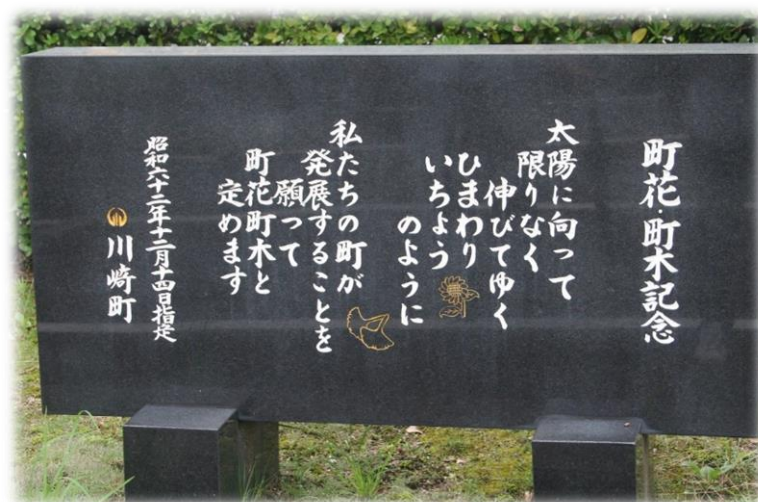 町花・町木記念
太陽に向って
限りなく
伸びてゆく
ひまわり
いちよう
のように
私たちの町が
発展することを
願って
町花町木と
定めます
昭和六十二年十二月十四日指定
川崎町